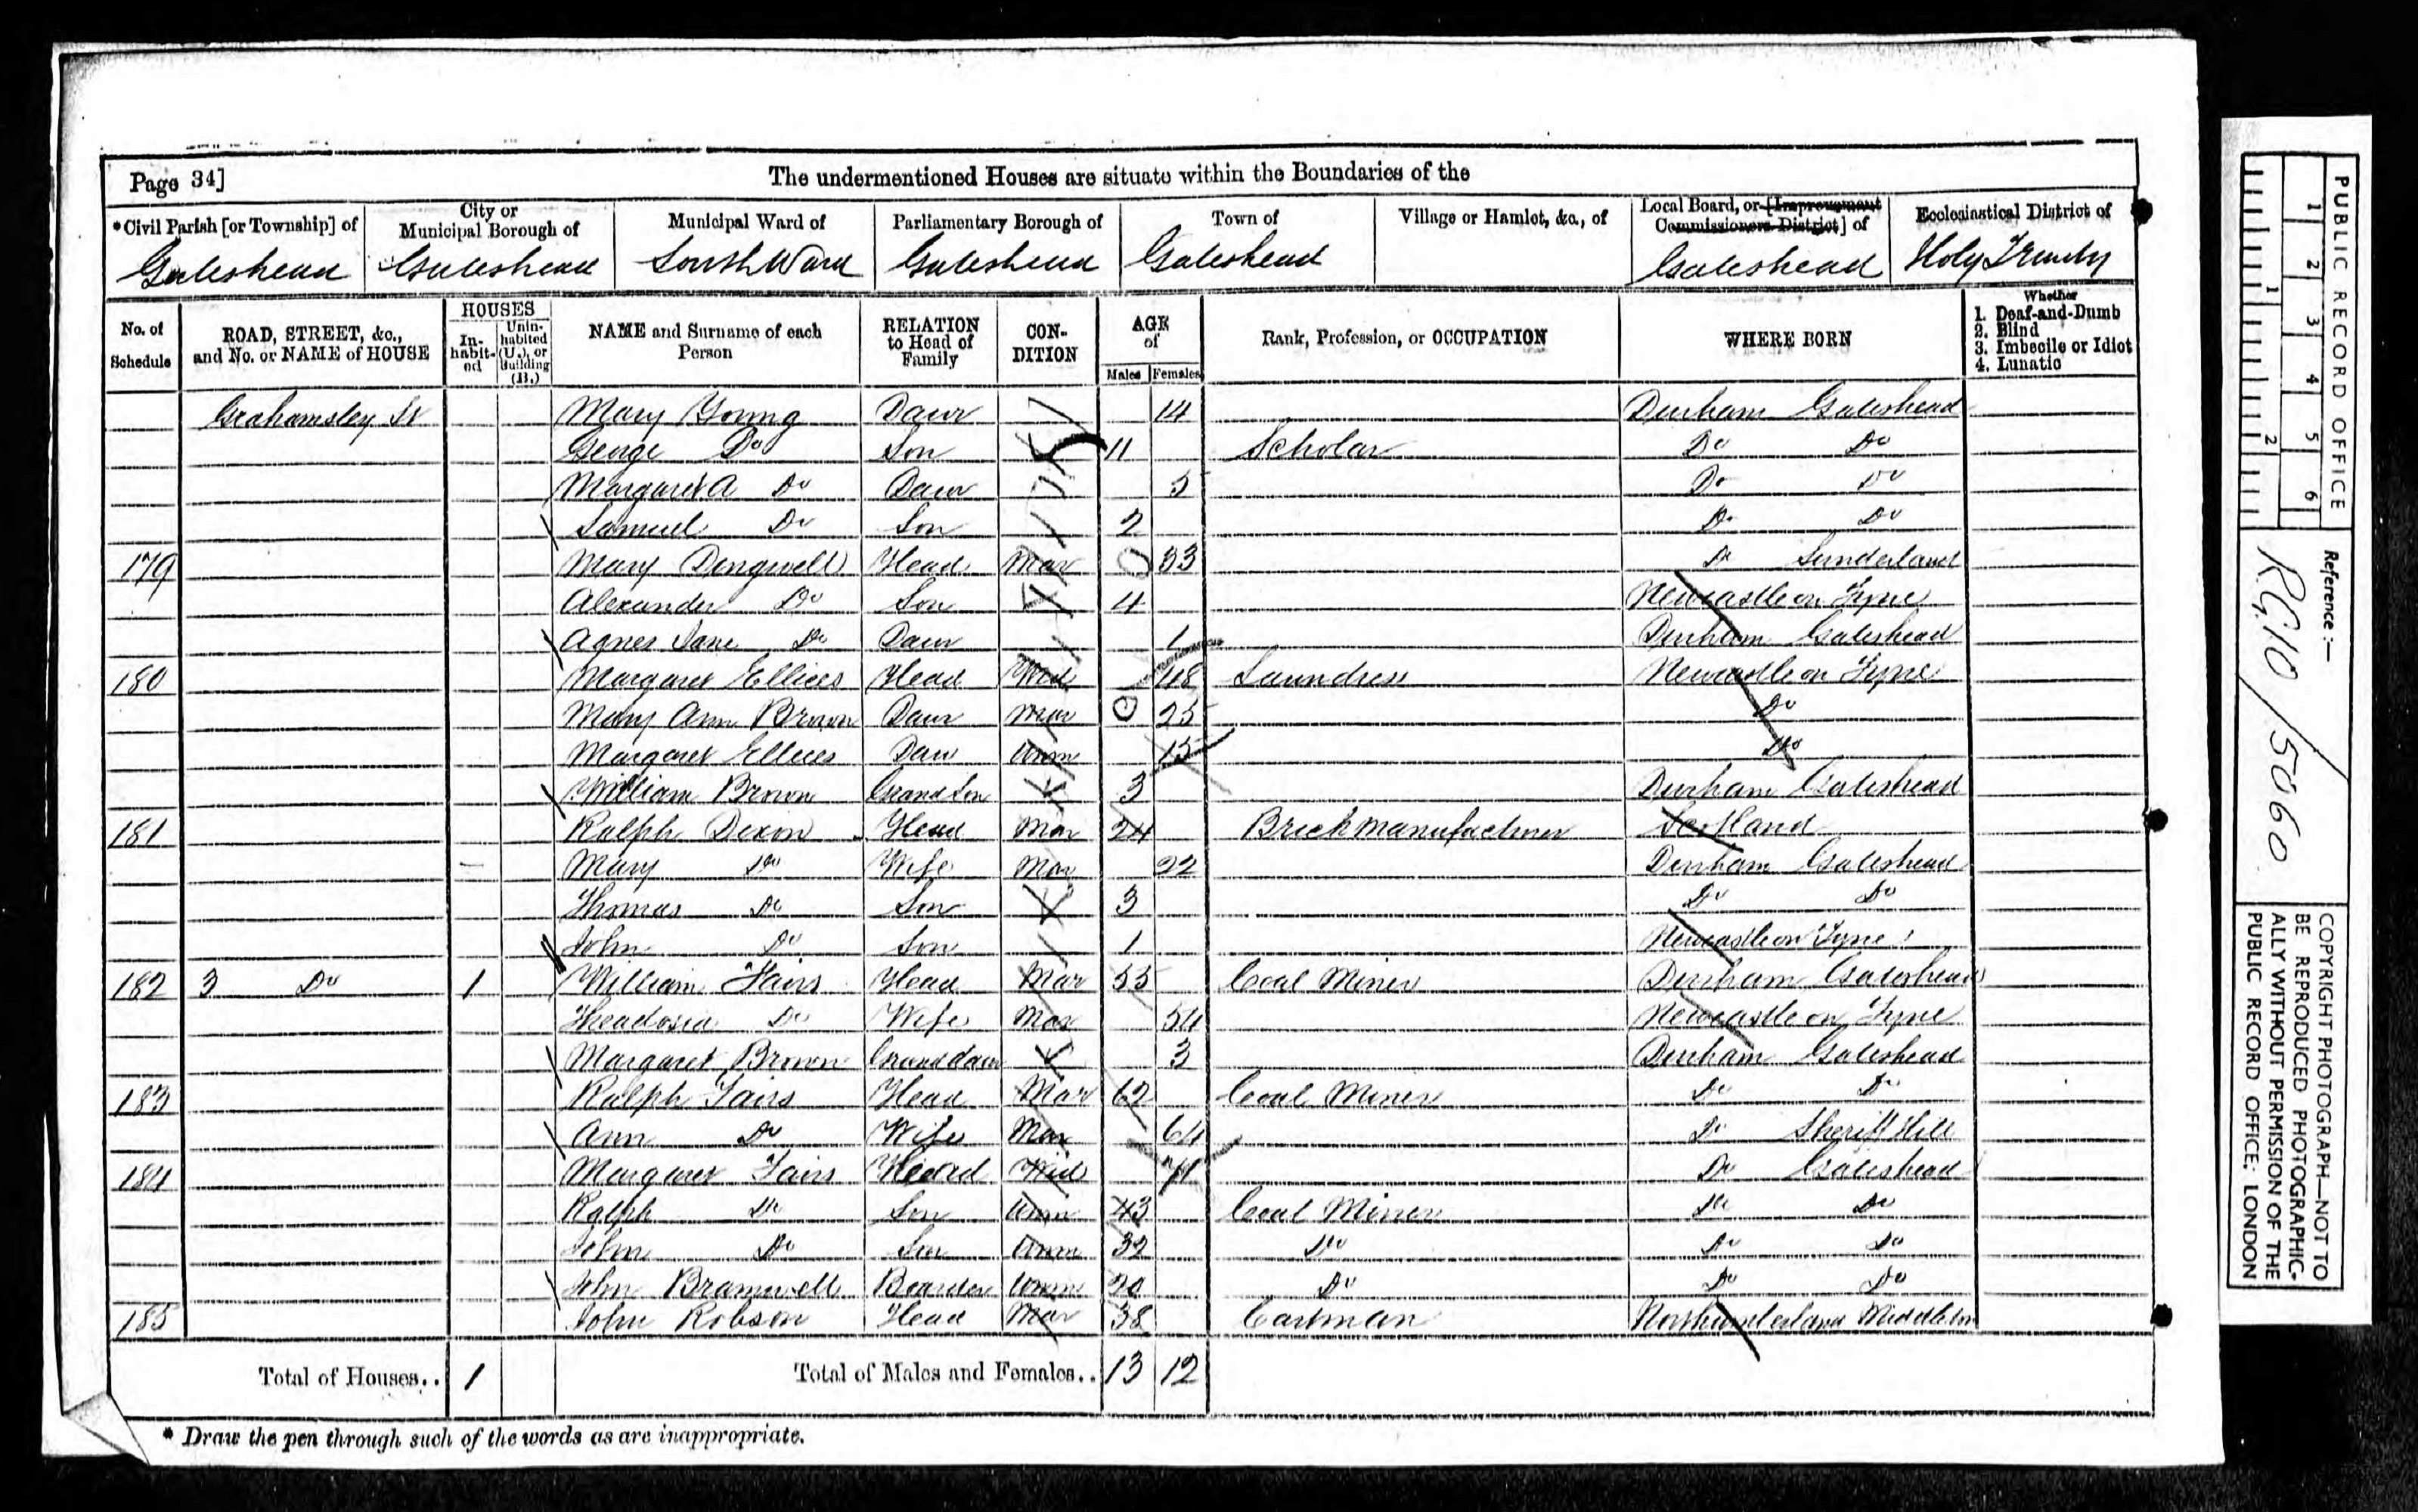 Page 34]
The undermentioned Houses are situate within the Boundaries of the
*Civil Parish [or Township] of
City or Municipal Borough of
Municipal Ward of
Parliamentary Borough of
Town of
Village or Hamlet, &c., of
Local Board, or [Improvement Commissioners District] of
Ecclesiastical District of
Gateshead Gateshead South Ward Gateshead Gateshead Gateshead Holy Trinity
No. of Schedule
ROAD, STREET, &c., and No. or NAME of HOUSE
HOUSES
In-habit-ed
Unin-habited (U.), or Building (B.)
NAME and Surname of each Person
RELATION to Head of Family
CON-DITION
AGE of
Males Females
Rank, Profession, or OCCUPATION
WHERE BORN
Whether
1. Deaf-and-Dumb
2. Blind
3. Imbecile or Idiot
4. Lunatic
Grahamsley St Mary Young Daur 14 Durham Gateshead
George Do Son 11 Scholar Do Do
Margaret A Do Daur 5 Do Do
Samuel Do Son 2 Do Do
179 Mary Dingwell Head Mar 33 Do Sunderland
Alexander Do Son 4 Newcastle on Tyne
Agnes Jane Do Daur 1 Durham Gateshead
180 Margaret Head Wid 48 Laundress Newcastle on Tyne
Mary Ann Brown Daur Mar 25 Do
Margaret Daur Unm 15 Do
William Brown Grand Son 3 Durham Gateshead
181 Ralph Dixon Head Mar 24 Brick manufacturer Scotland
Mary Do Wife Mar 22 Durham Gateshead
Thomas Do Son 3 Do Do
John Do Son 1 Newcastle on Tyne
182 3 Do 1 William Fairs Head Mar 55 Coal Miner Durham Gateshead
Theadosia Do Wife Mar 54 Newcastle on Tyne
Margaret Brown Grand daur 3 Durham Gateshead
183 Ralph Fairs Head Mar 62 Coal Miner Do Do
Ann Do Wife Mar 64 Do Sheriff Hill
184 Margaret Fairs Head Wid 71 Do Gateshead
Ralph Do Son Unm 43 Coal Miner Do Do
John Do Son Unm 32 Do Do Do
John Bramwell Boarder Unm 20 Do Do Do
185 John Robson Head Mar 38 Cartman Northumberland Middleton
Total of Houses.. 1 Total of Males and Females.. 13 12
* Draw the pen through such of the words as are inappropriate.
PUBLIC RECORD OFFICE
1 2 3 4 5 6
1 2
Reference :—
RG 10/5060
COPYRIGHT PHOTOGRAPH—NOT TO BE REPRODUCED PHOTOGRAPHIC-ALLY WITHOUT PERMISSION OF THE PUBLIC RECORD OFFICE: LONDON